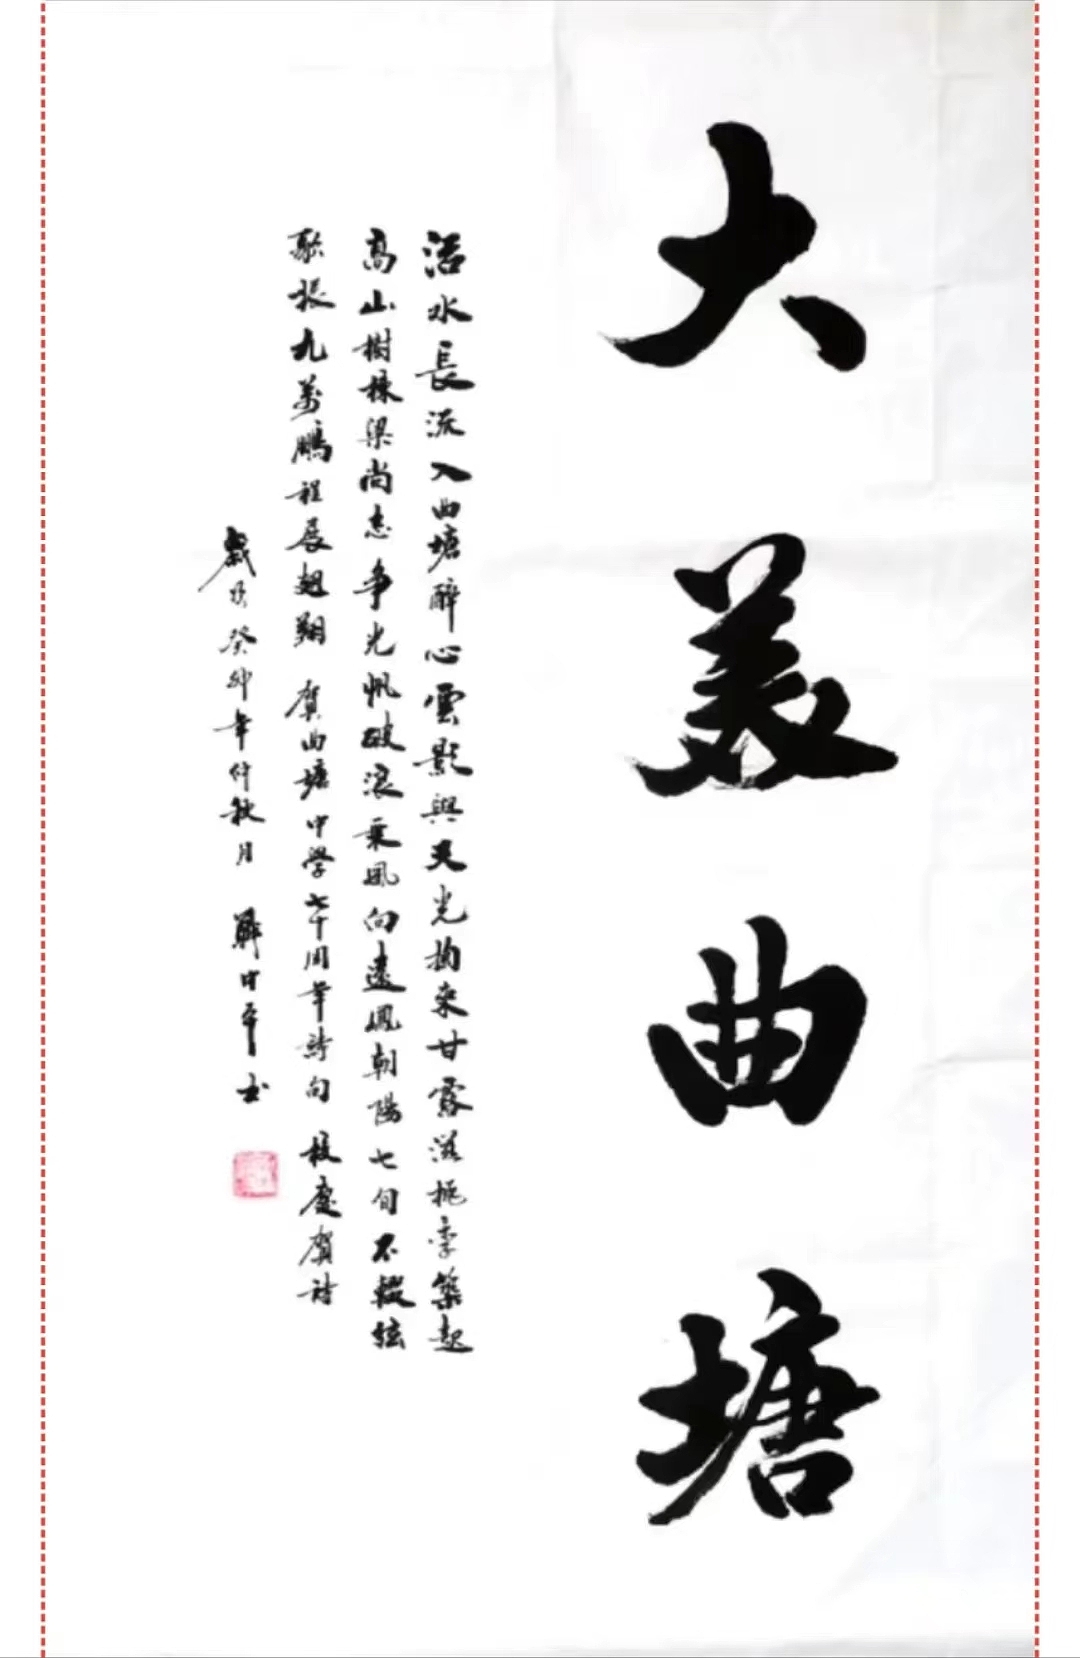 大美曲塘
活水長流入曲塘醉心雲影與天光掬來甘露滋桃李築起
高山樹棟梁尚志争光帆破浪乘風向遠鳳朝陽七旬不輟弦
歌振九萬鵬程展翅翔 賀曲塘中學七十周年詩句 校慶賀詩
歲次癸卯年仲秋月 中平書